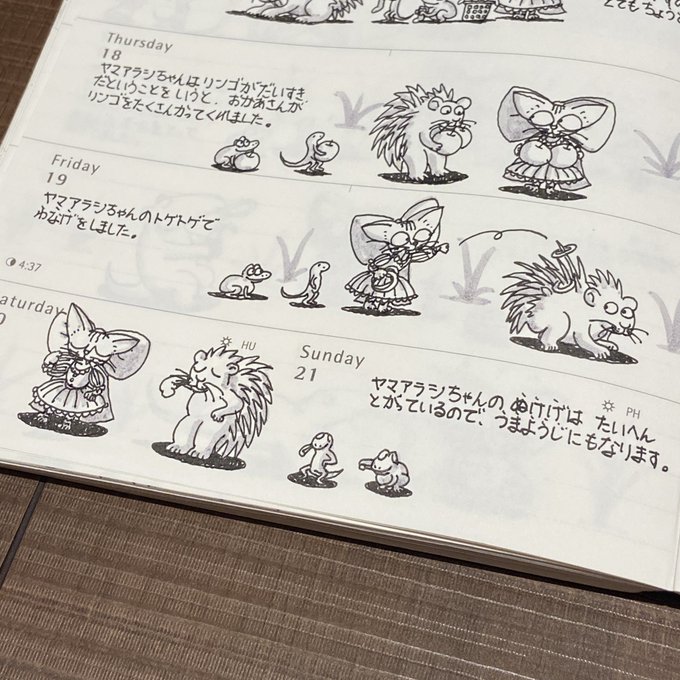 とてもちょうど
Thursday
18
ヤマアラシちゃんはリンゴがだいすき
だということをしうと、おかあさんが
リンゴをたくさんかってくれました。
Friday
19
ヤマアラシちゃんのトゲトゲで
わなげをしました。
4:37
aturday
0
HU
Sunday
21
PH
ヤマアラシちゃんの、ぬけげは たいへん
とがっているので、つまようじにもなります。